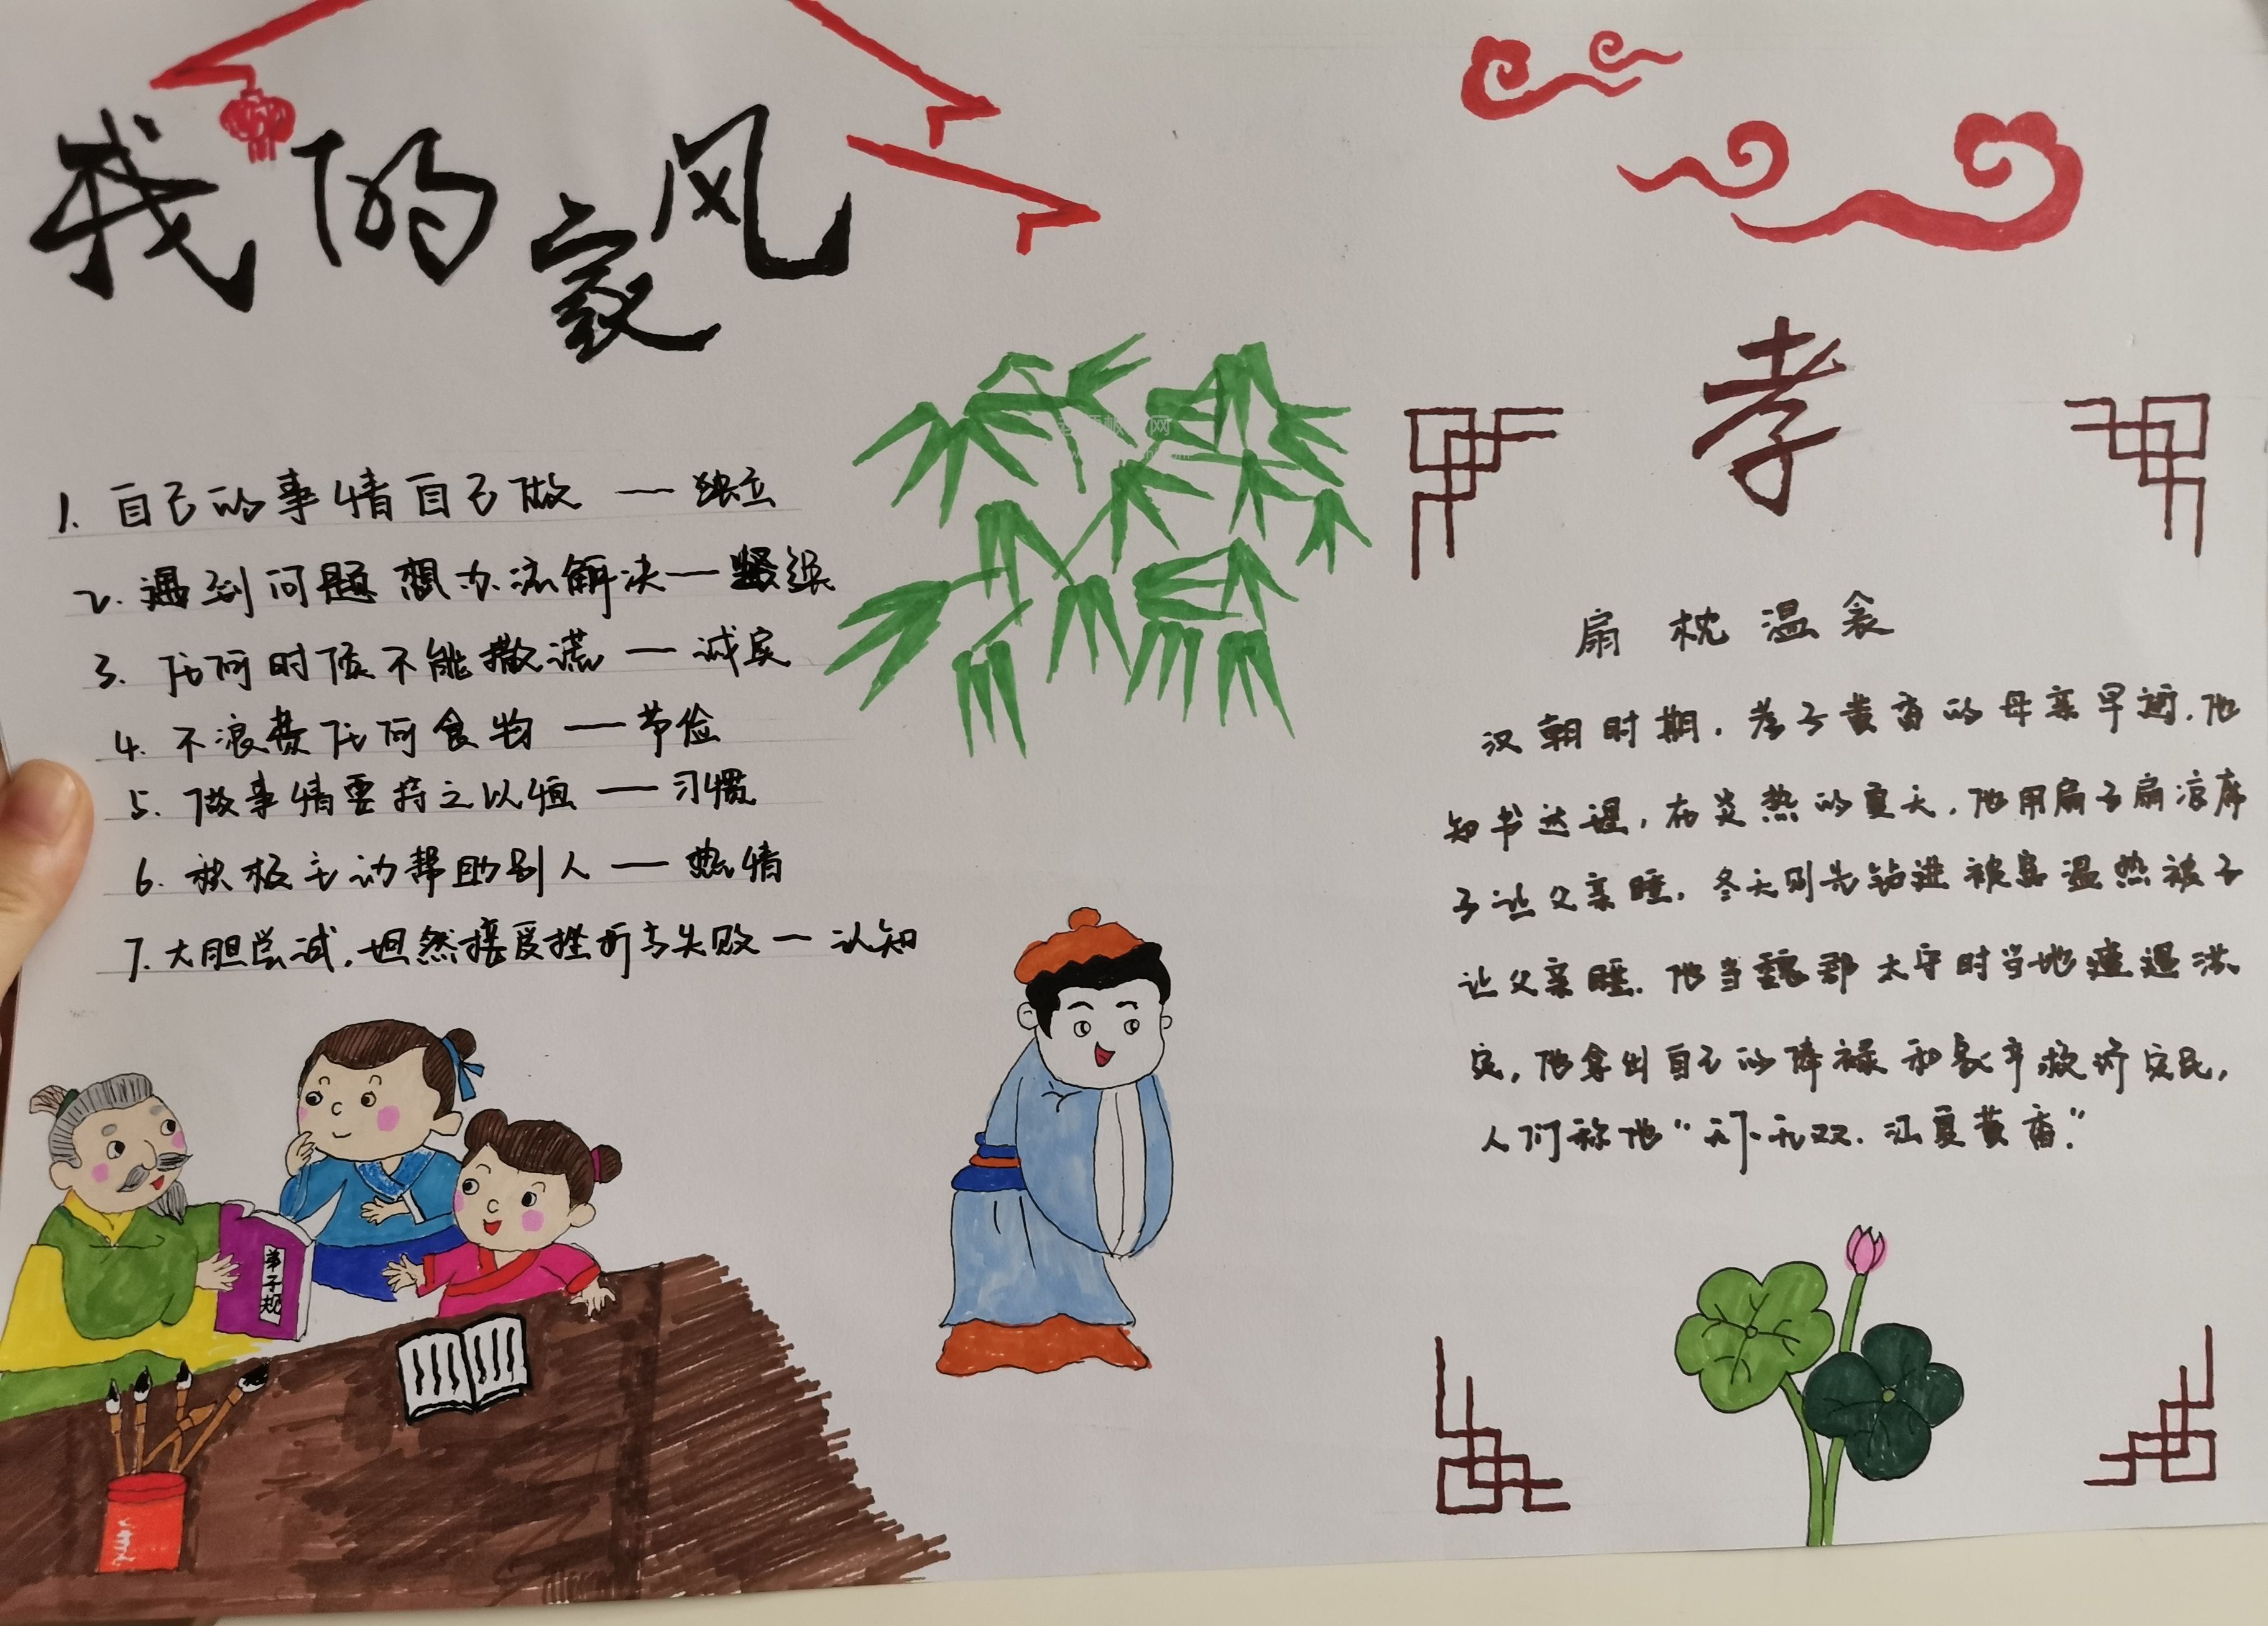 我的家风
1. 自己的事情自己做 — 独立
2. 遇到问题想办法解决 — 坚强
3. 任何时候不能撒谎 — 诚实
4. 不浪费任何食物 — 节俭
5. 做事情要持之以恒 — 习惯
6. 积极主动帮助别人 — 热情
7. 大胆尝试,坦然接受挫折与失败 — 认知
弟子规
孝
扇枕温衾
汉朝时期,孝子黄香的母亲早逝,他
知书达理,在炎热的夏天,他用扇子扇凉席
子让父亲睡,冬天则先钻进被窝温热被子
让父亲睡.他当魏郡太守时当地遭遇洪
灾,他拿出自己的俸禄和家产救济灾民,
人们称他“天下无双.江夏黄香.”